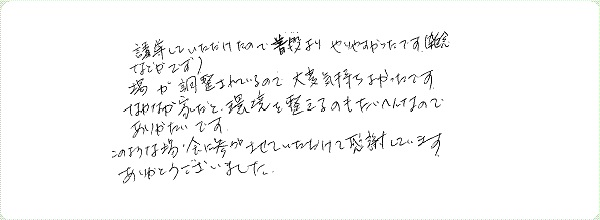 誘導していただけたので普段よりやりやすかったです(雑念
などがです)
場が調整されているので大変気持ちよかったです
なかなか家だと、環境を整えるのもたいへんなので
ありがたいです。
このような場・会に参加させていただけて感謝しています
ありがとうございました。